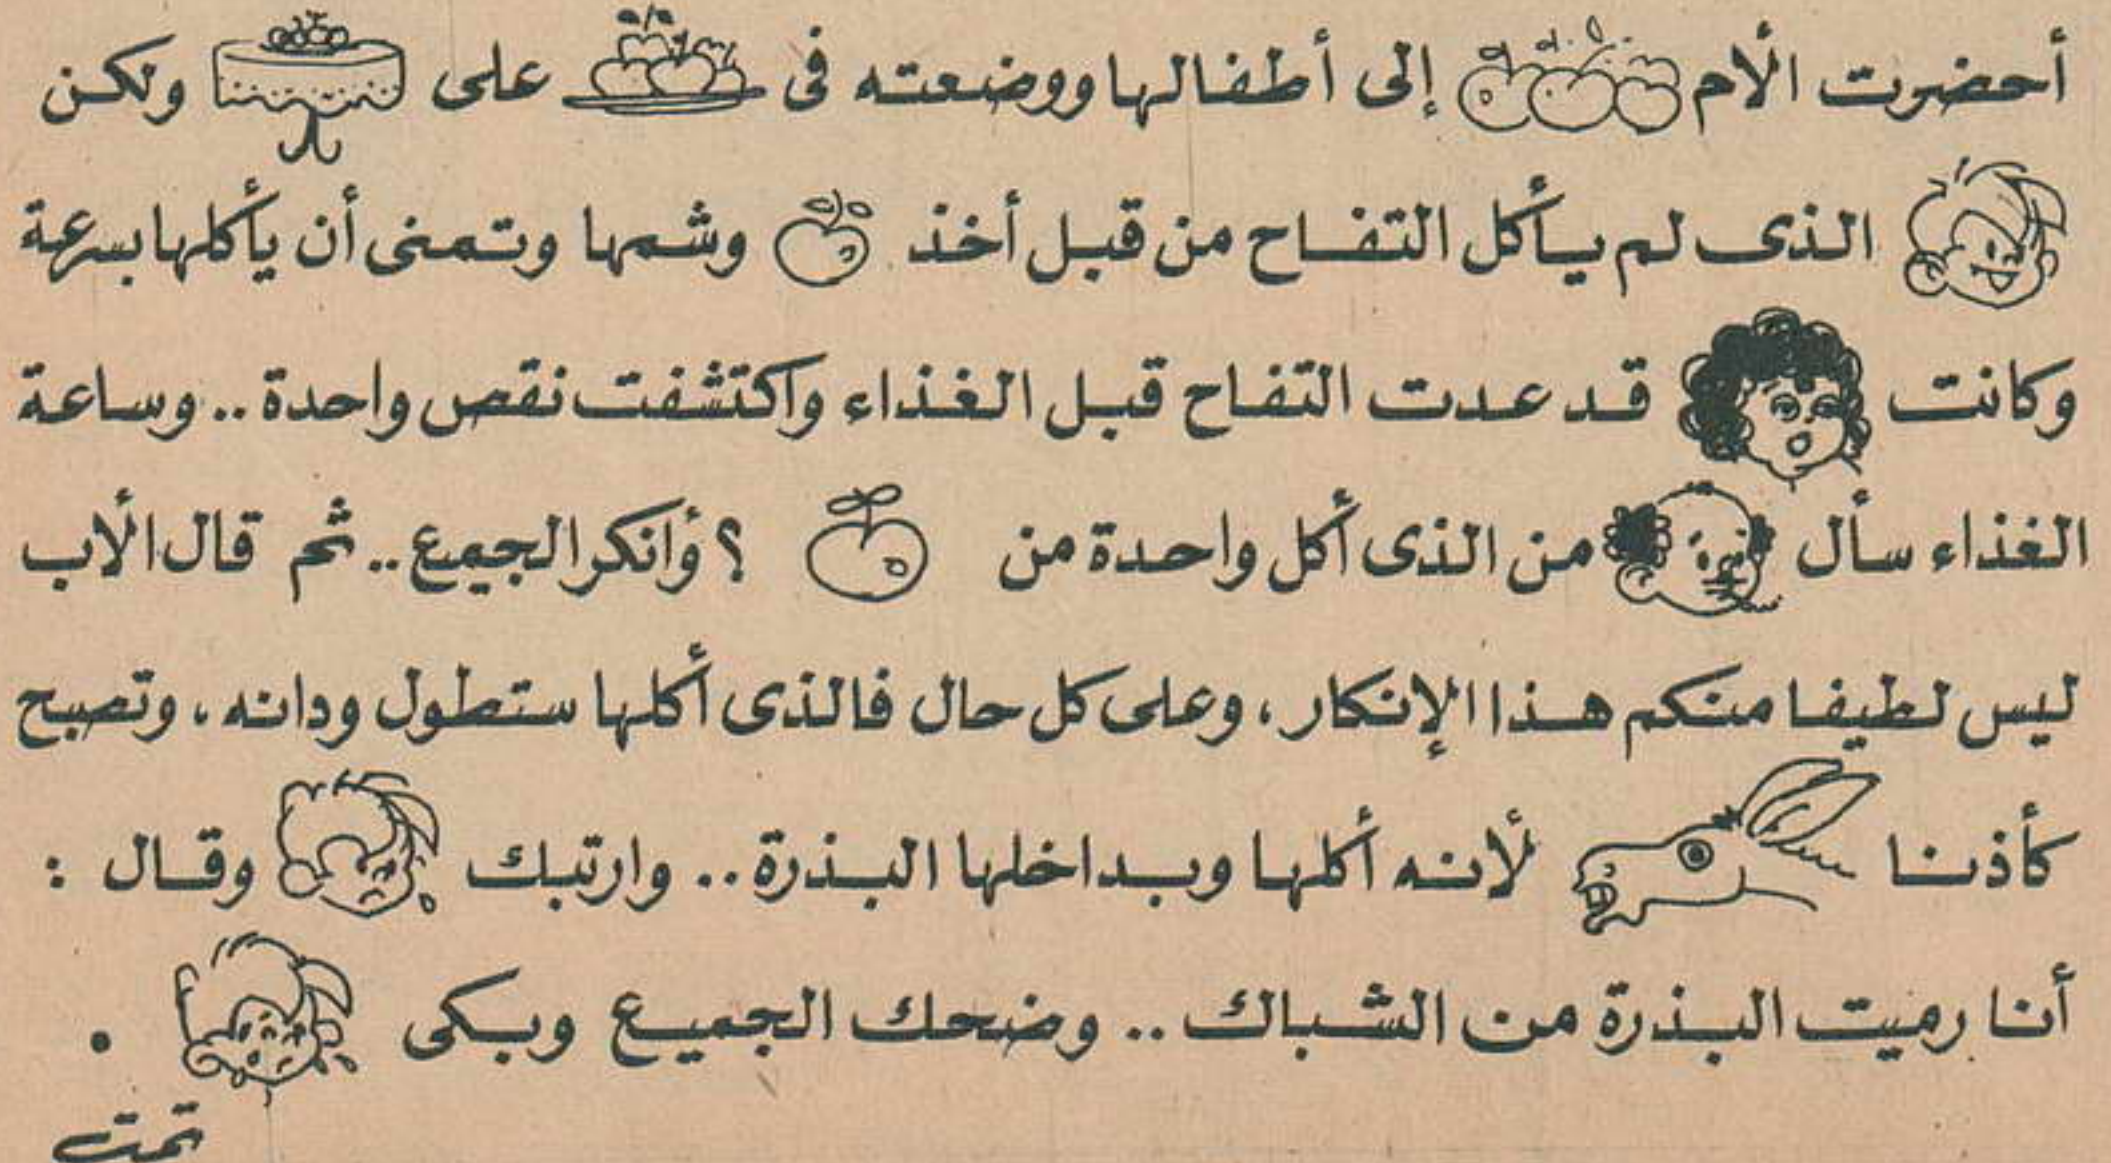 أحضرت الأم إلى أطفالها ووضعته فى على ولكن
الذى لم يأكل التفاح من قبل أخذ وشمها وتمنى أن يأكلها بسرعة
وكانت قد عدت التفاح قبل الغذاء واكتشفت نقص واحدة .. وساعة
الغذاء سأل من الذى أكل واحدة من ؟ وأنكر الجميع .. ثم قال الأب
ليس لطيفا منكم هذا الإنكار ، وعلى كل حال فالذى أكلها ستطول ودانه ، وتصبح
كأذنا لأنه أكلها وبداخلها البذرة .. وارتبك وقال :
أنا رميت البذرة من الشباك .. وضحك الجميع وبكى .
تمت